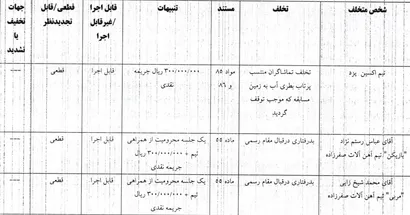 شخص متخلف
تخلف
مستند
تنبیهات
قابل اجرا
/غیرقابل
اجرا
قطعی/قابل
تجدیدنظر
جهات
تخفیف
یا
تشدید
تیم اکسین یزد
تخلف تماشاگران منتسب
پرتاب بطری آب به زمین
مسابقه که موجب توقف
گردید
مواد ۸۵
و ۸۶
۳۰۰/۰۰۰/۰۰۰ ریال جریمه
نقدی
قابل اجرا
قطعی
----
آقای عباس رستم نژاد
"بازیکن" تیم آهن آلات صفرزاده
بدرفتاری درقبال مقام رسمی
ماده ۵۵
یک جلسه محرومیت از همراهی
تیم + ۳۰۰/۰۰۰/۰۰۰ ریال
جریمه نقدی
قابل اجرا
قطعی
----
آقای محمد شیخ زایی
"مربی" تیم آهن آلات صفرزاده
بدرفتاری درقبال مقام رسمی
ماده ۵۵
یک جلسه محرومیت از همراهی
تیم + ۳۰۰/۰۰۰/۰۰۰ ریال
جریمه نقدی
قابل اجرا
قطعی
----